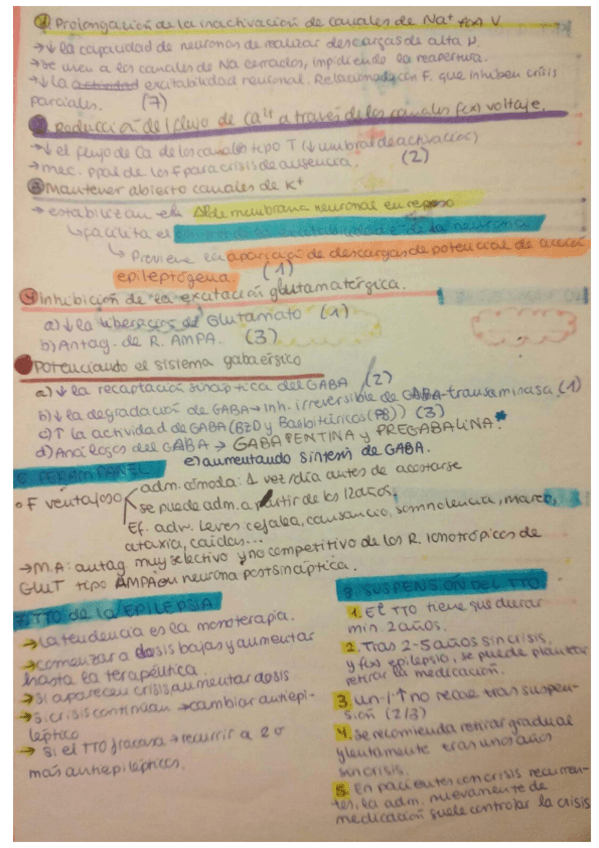 1 Prolongación de la inactivación de canales de Na+ f(x) V
→↓ la capacidad de neuronas de realizar descargas de alta µ.
→Se unen a los canales de Na cerrados, impidiendo la reapertura.
→↓ la actividad excitabilidad neuronal. Relacionado con F. que inhiben crisis
parciales. (7)
2 Reducción del flujo de Ca++ a través de los canales f(x) voltaje.
→↓ el flujo de Ca de los canales tipo T (↓ umbral de activación)
→mec. ppal de los F para crisis de ausencia. (2)
3 Mantener abierto canales de K+
→ estabilizan el Δ de membrana neuronal en reposo
↳ facilita el de la neurona
↳ Previene la aparición de descargas de potencial de acción
epileptógena (1)
4 Inhibición de la excitación glutamatérgica.
a) ↓ la liberación de Glutamato (1)
b) Antag. de R. AMPA. (3)
Potenciando el sistema gabaérgico
a) ↓ la recaptación sináptica del GABA (2)
b) ↓ la degradación de GABA → inh. irreversible de GABA-transaminasa (1)
c) ↑ la actividad de GABA (BZD y Barbitúricos (PB)) (3)
d) Análogos del GABA → GABAPENTINA y PREGABALINA. *
e) aumentando síntesis de GABA.
PERAMPANEL
• F ventajoso
adm. cómoda: 1 vez/día antes de acostarse
se puede adm. a partir de los 12 años.
Ef. adv. leves cefalea, cansancio, somnolencia, mareo,
ataxia, caídas...
→ M.A: antag. muy selectivo y no competitivo de los R. Ionotrópicos de
GLUT tipo AMPA en neurona postsináptica.
7. TTO de la EPILEPSIA
→ La tendencia es la monoterapia.
→ comenzar a dosis bajas y aumentar
hasta la terapéutica.
→ Si aparecen crisis, aumentar dosis
→ Si crisis continúan → cambiar antiepi-
léptico
→ Si el TTO fracasa → recurrir a 2 o
más antiepilépticos.
8. SUSPENSIÓN DEL TTO
1. El TTO tiene que durar
min. 2 años.
2. Tras 2-5 años sin crisis,
y f(x) epilepsia, se puede plantear
retirar la medicación.
3. un ↑ no recae tras suspen-
sión (2/3)
4. Se recomienda retirar gradual
y lentamente tras unos años
sin crisis.
5. En pacientes con crisis recurren-
tes, la adm. nuevamente de
medicación suele controlar la crisis